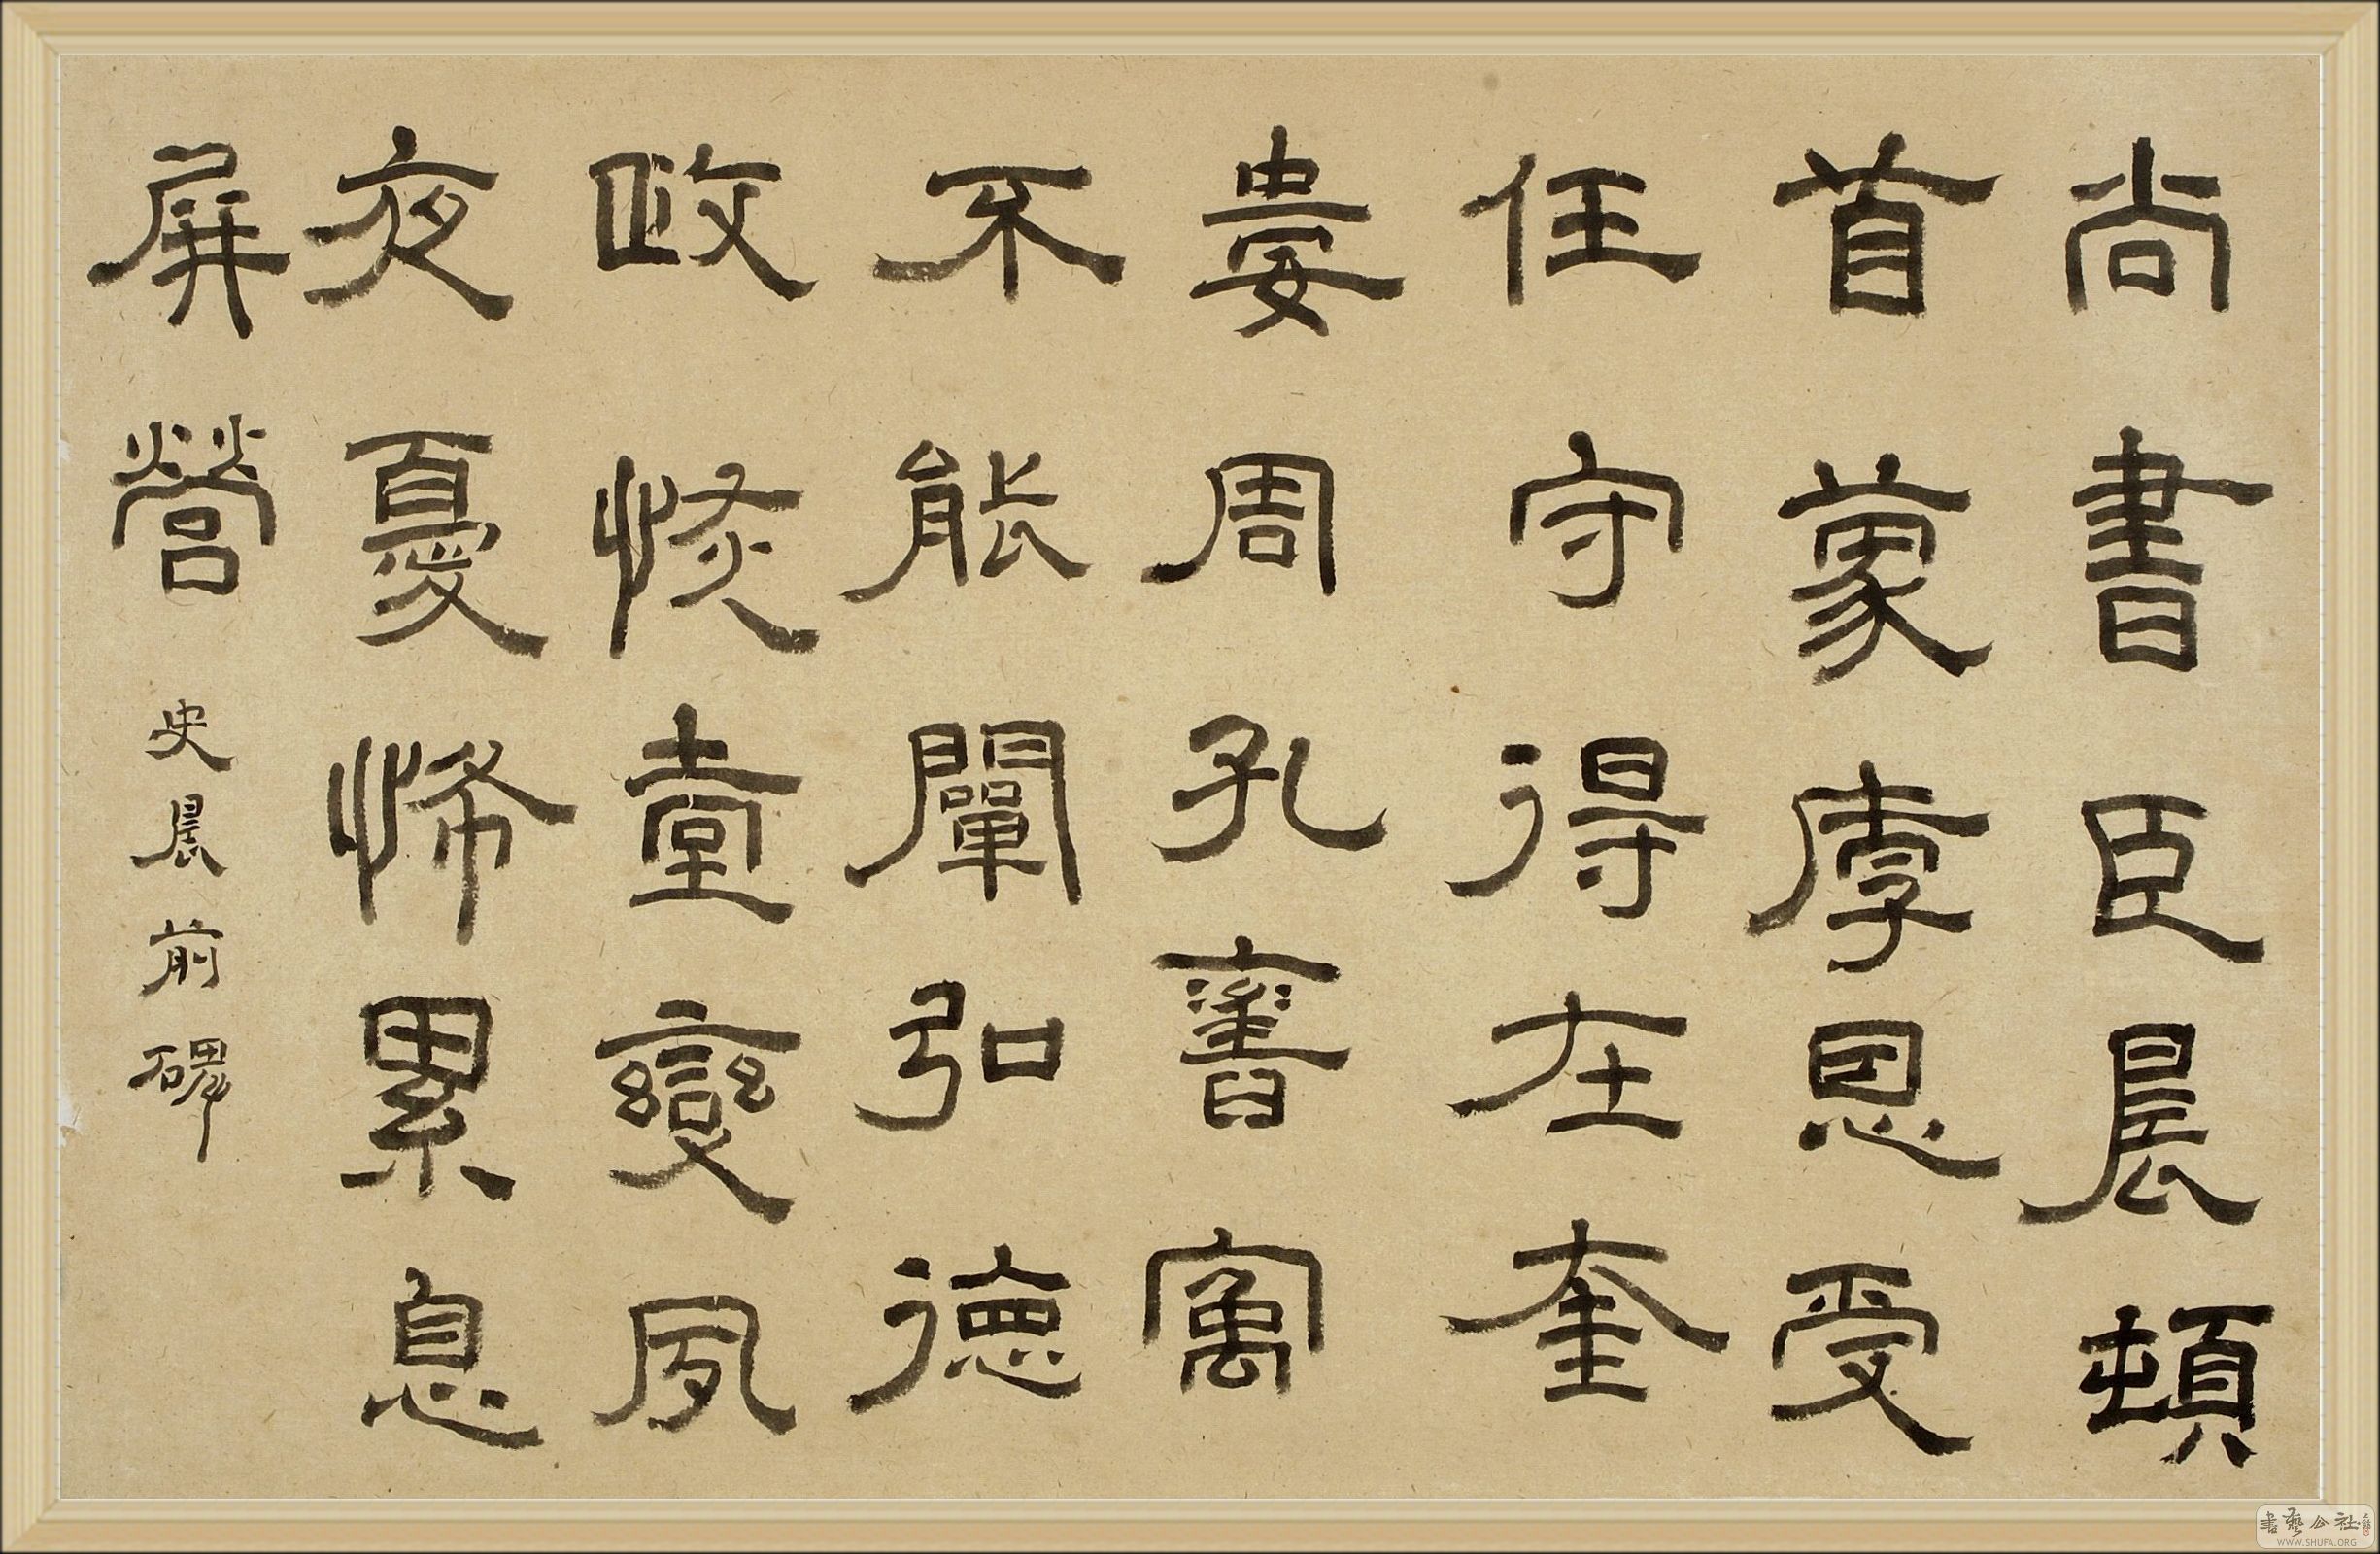 尚書臣晨頓
首蒙厚恩受
任守得在奎
婁周孔舊寓
不能闡弘德
政恢壹變夙
夜憂怖累息
屏營
史晨前碑
書藝公社
WWW.SHUFA.ORG